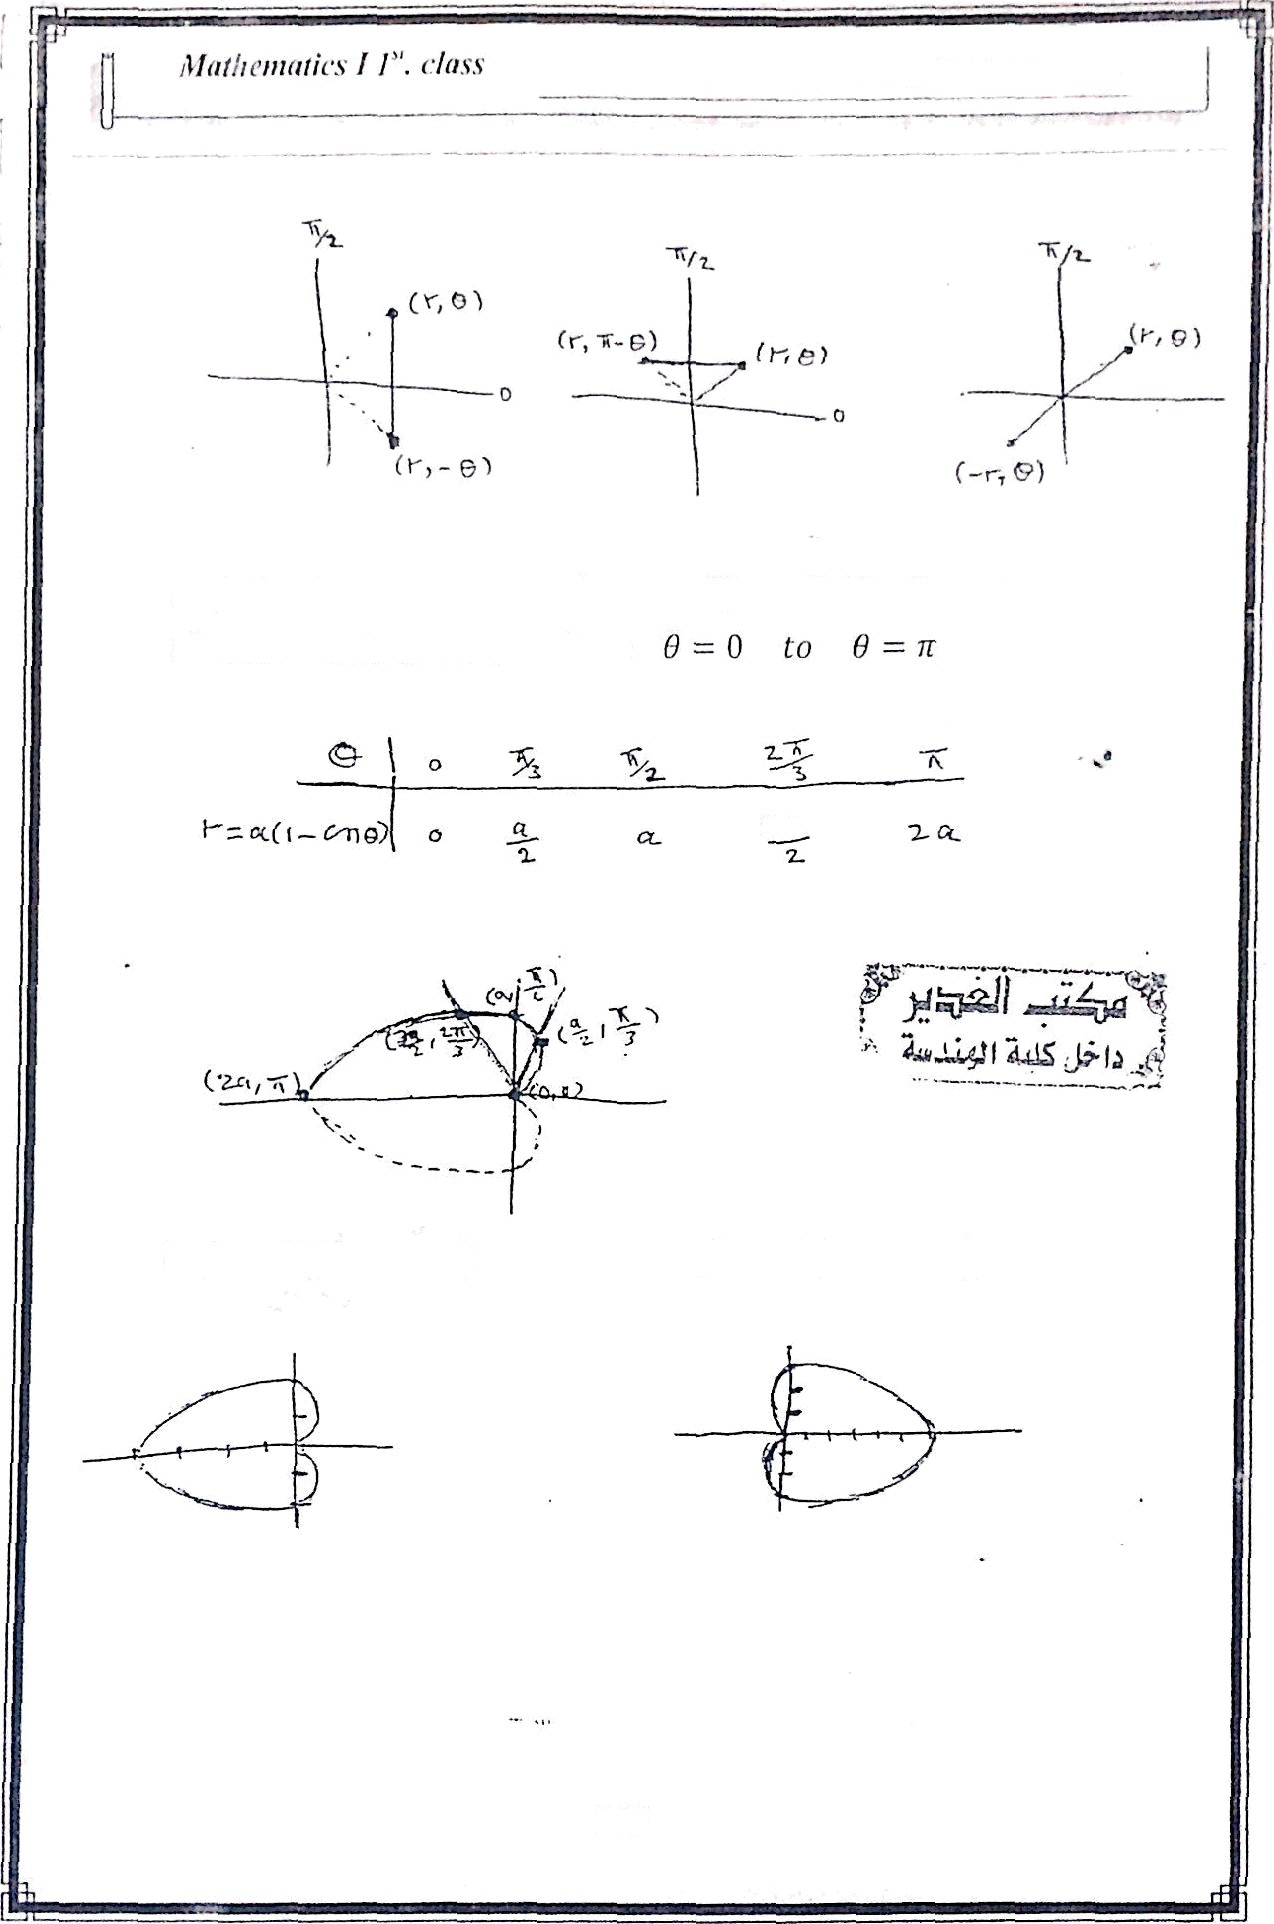 Mathematics I 1st. class
π/2
π/2
π/2
(r, θ)
(r, π-θ)
(r, θ)
(r, θ)
0
0
(r, -θ)
(-r, θ)
θ = 0 to θ = π
θ 0 π/3 π/2 2π/3 π
r = a(1 - cosθ) 0 a/2 a /2 2a
(a, π/2)
(3a/2, 2π/3)
(a/2, π/3)
(2a, π)
(0, 0)
مكتب الغدير
داخل كلية الهندسة